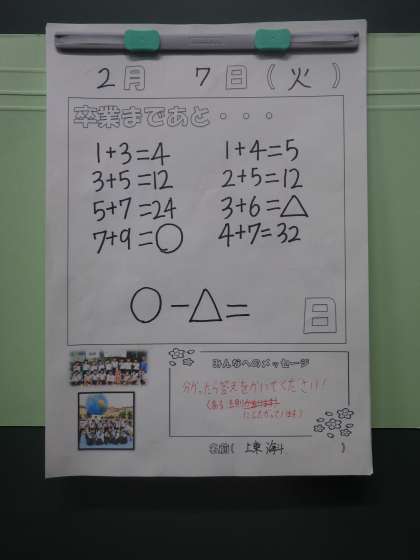 2月 7日(火)
卒業まであと・・・
1+3=4 1+4=5
3+5=12 2+5=12
5+7=24 3+6=△
7+9=○ 4+7=32
○-△= 日
みんなへのメッセージ
分かったら答えをかいてください!
(ある法則
にしたがっています)
名前( 上東 海斗 )